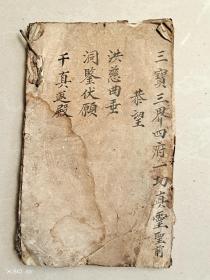 三寳三界四府一切真靈聖前
恭望
洪慈曲垂
洞鑒伏願
千真返殿